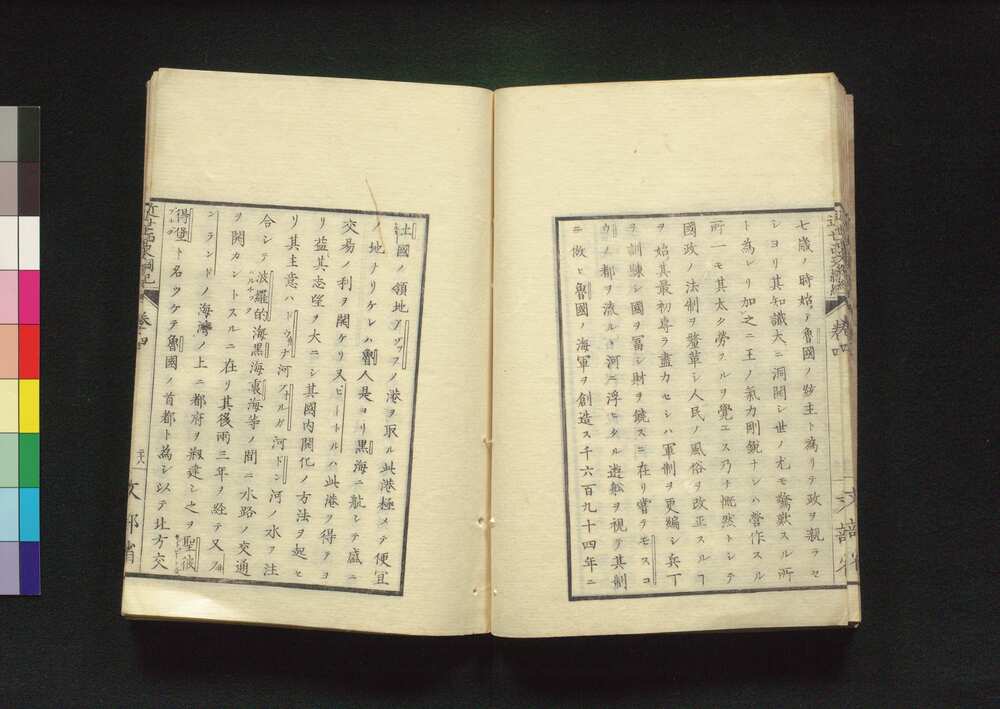 七歳ノ時始テ魯國ノ主ト為リテ政ヲ親ラセ
シヨリ其知識大ニ洞開シ世ノ尤モ驚歎スル所
ト為レリ加之ニ王ノ氣力剛鋭ナレハ営作スル
所一モ其太タ勞スルヲ覺エス乃チ慨然トシテ
國政ノ法制ヲ釐革シ人民ノ風俗ヲ改正スルヿ
ヲ始其最初専ラ盡力セシハ軍制ヲ更編シ兵丁
ヲ訓練シ國ヲ冨シ財ヲ饒スニ在リ嘗テモスコ
ウノ都ヲ流ルヽ河ニ浮ヒタル遊舩ヲ視テ其制
ニ倣ヒ魯國ノ海軍ヲ創造ス千六百九十四年ニ
卷四
文部省
土國ノ領地アゾフノ港ヲ取ル此港極メテ便宜
ノ地ナリケレハ魯人是ヨリ黒海ニ航シテ盛ニ
交易ノ利ヲ開ケリ又ピートルハ此港ヲ得テヨ
リ益其志望ヲ大ニシ其國内開化ノ方法ヲ起セ
リ其主意ハドウィナ河フォルガ河ドン河ノ水ヲ注
合シテ波羅的海黒海裏海等ノ間ニ水路ノ交通
ヲ開カントスルニ在リ其後両三年ヲ経テ又フィ
ンランドノ海灣ノ上ニ都府ヲ剏建シ之ヲ聖彼
得堡ト名ツケテ魯國ノ首都ト為シ以テ北方交
近世西史綱紀
卷四
文部省